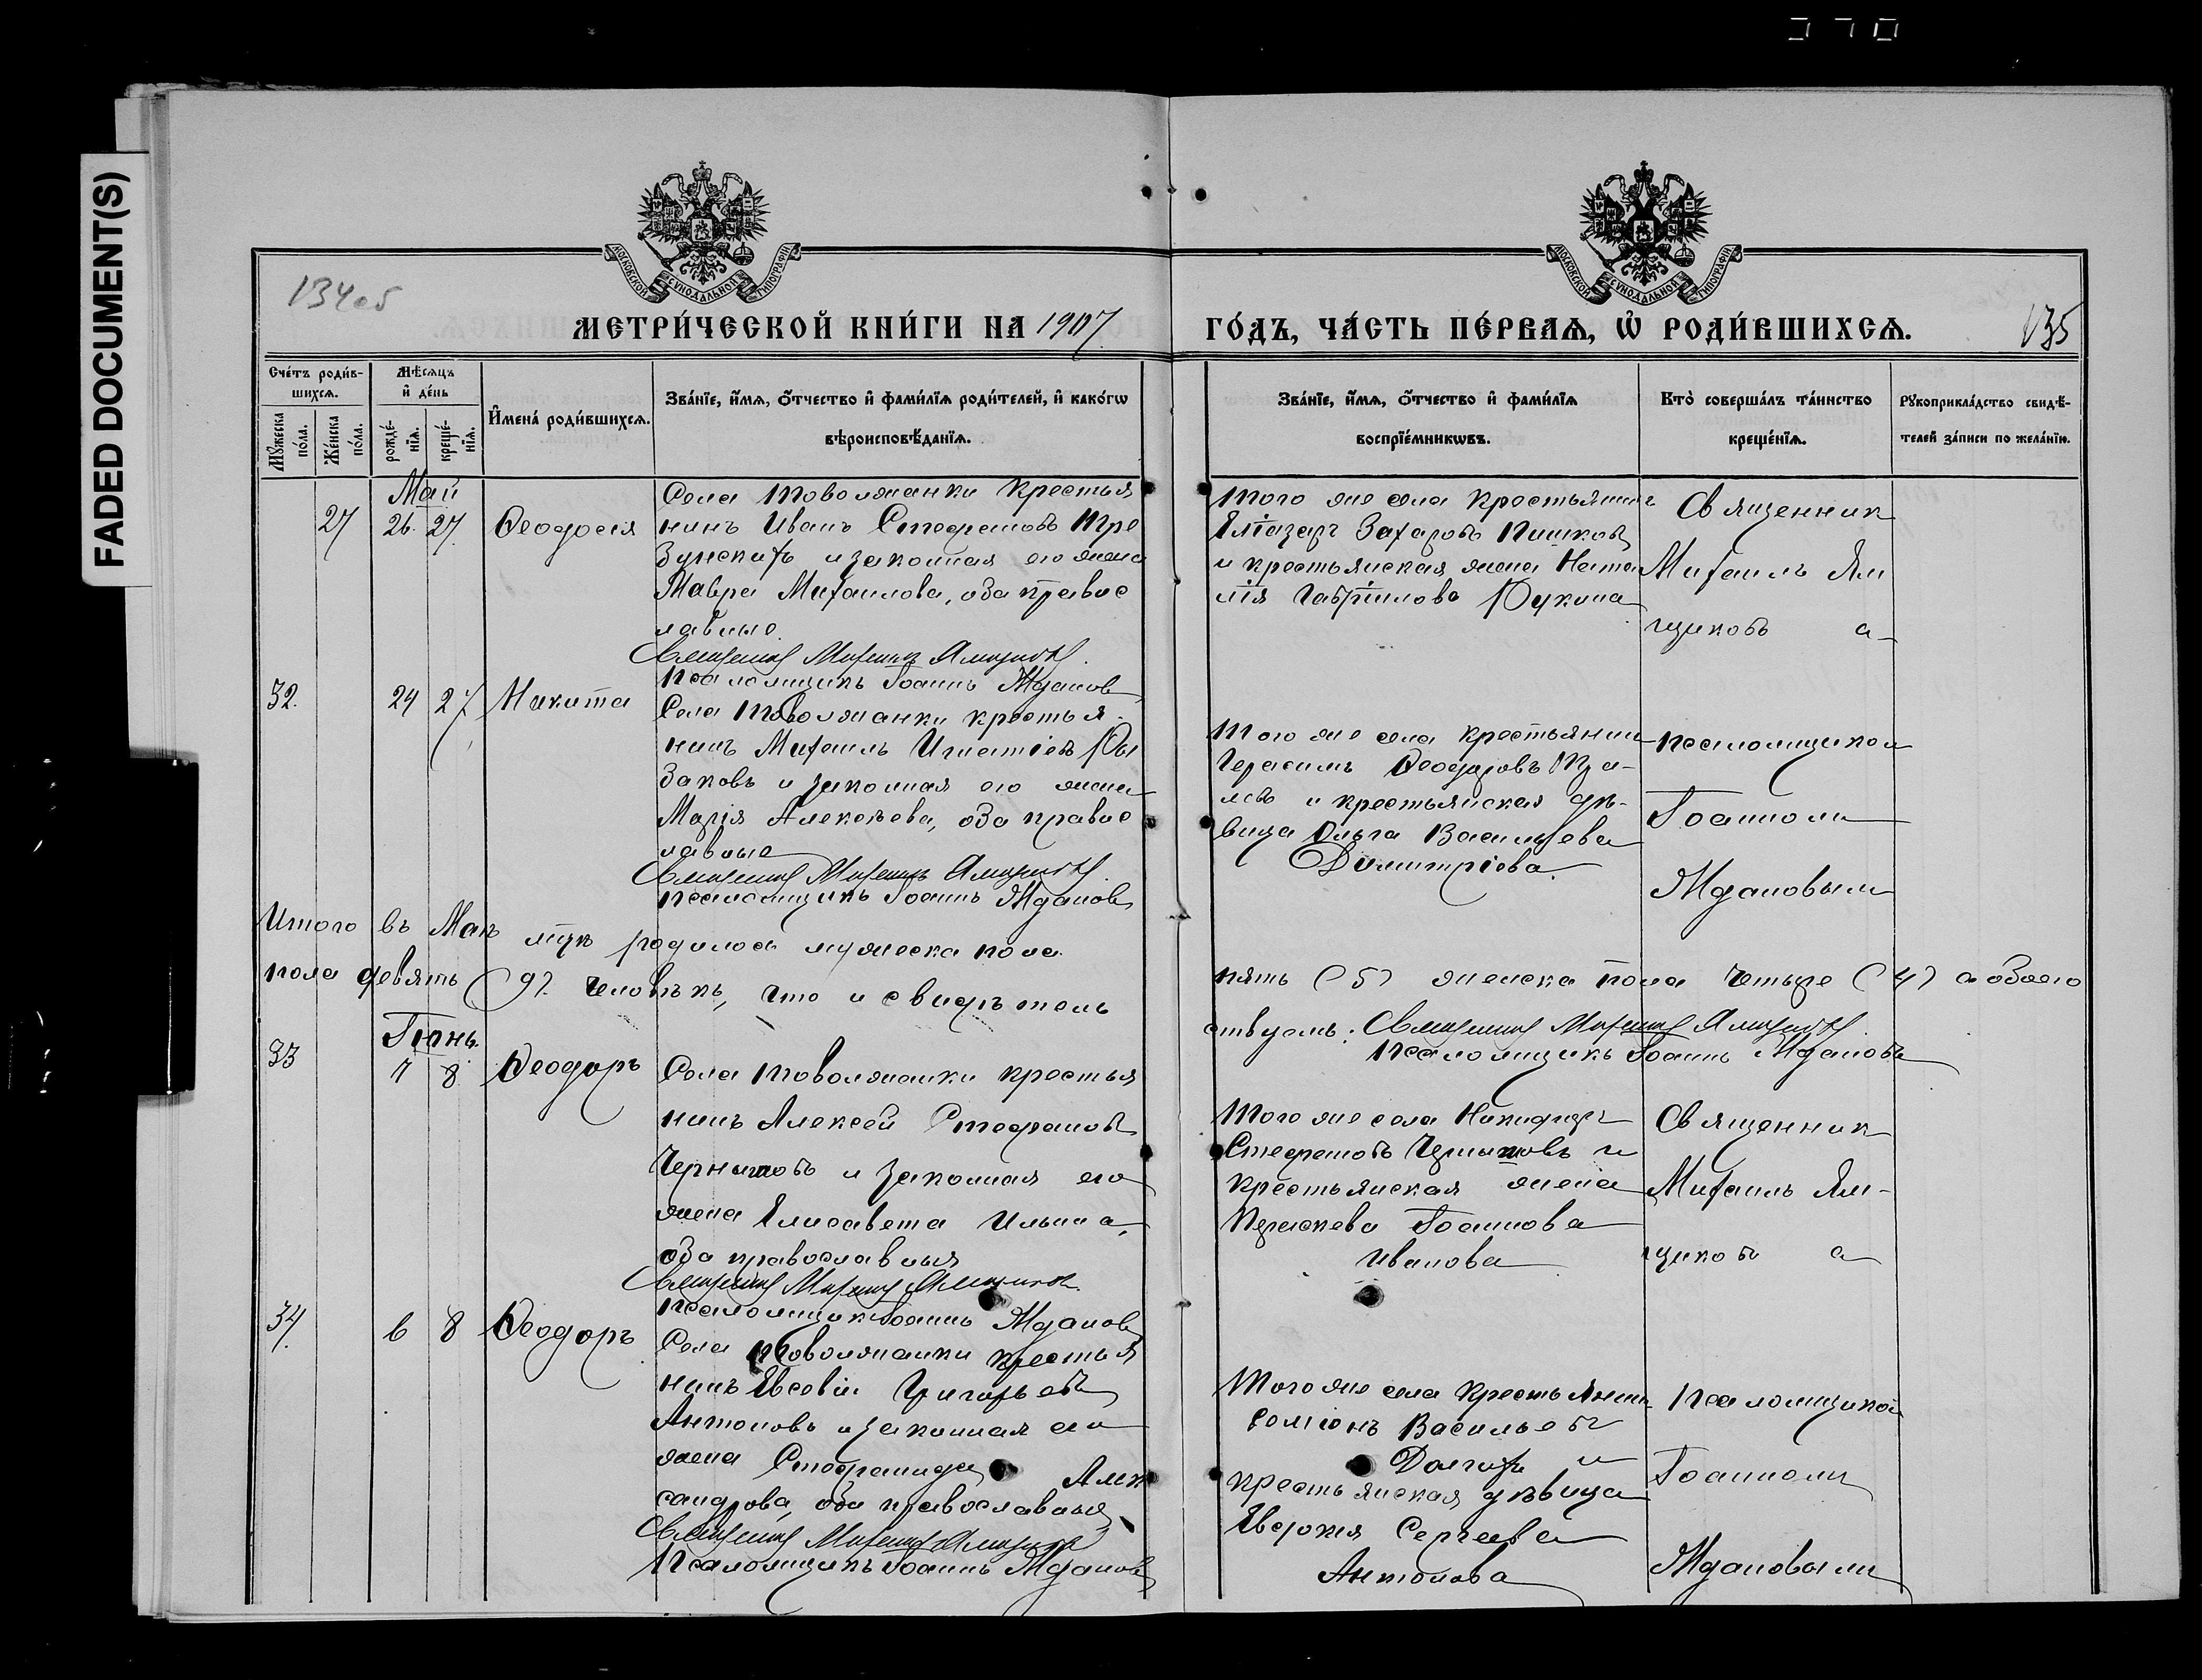 FADED DOCUMENT(S)
134об
135
МОСКОВСКОЙ СѴНОДАЛЬНОЙ ТИПОГРАФІИ
МОСКОВСКОЙ СѴНОДАЛЬНОЙ ТИПОГРАФІИ
МЕТРИ́ЧЕСКОЙ КНИ́ГИ НА 1907
ГО́ДЪ, ЧА́СТЬ ПЕ́РВАѦ, Ѡ҆ РОДИ́ВШИХСѦ.
Сче́тъ роди́в-
шихсѧ.
Мꙋ́жеска по́ла.
Же́нска по́ла.
Мѣ́сѧцъ
и҆ де́нь
рожде́-нїѧ.
креще́-нїѧ.
И҆мена̀ роди́вшихсѧ.
Зва́нїе, и҆́мѧ, о҆́тчество и҆ фамѝлїѧ роди́телей, и҆ како́гѡ
вѣроисповѣ́данїѧ.
Зва́нїе, и҆́мѧ, о҆́тчество и҆ фами́лїѧ
воспрїе́мникѡвъ.
Кто̀ соверша́лъ та́инство
креще́нїѧ.
Рꙋкоприкла́дство свидѣ́-
телей за́писи по жела́нїю.
Май
27 26. 27 Ѳеодосія
Села Товолжанки крестья
нинъ Иванъ Стефановъ Тре
зунскихъ и законная его жена
Мавра Михаилова, оба правос
лавные.
Священникъ Михаилъ Ямщиковъ.
Псаломщикъ Іоаннъ Ждановъ
Того же села крестьянинъ
Елiазаръ Захаровъ Пишковъ
и крестьянская жена Ната
лія Гавріилова
Священник
Михаилъ Ям
щиковъ а
32. 24 27 Никита
Села Товолжанки крестья
нинъ Михаилъ Игнатіевъ Ры
заковъ и законная его жена
Марія Алексѣева, оба правос
лавные
Священникъ Михаилъ Ямщиковъ.
Псаломщикъ Іоаннъ Ждановъ
Того же села крестьянин
Герасимъ Ѳеодоровъ
и крестьянская дѣ-
вица Ольга Васильева
Димитріева.
Псаломщиком
Іоанном
Ждановым
Итого въ Маѣ м-цѣ родилось мужеска пола
пять (5) женска пола четыре (4) а обоего
пола девять (9). человѣкъ, что и свидѣтель
ствуемъ: Священникъ Михаилъ Ямщиковъ.
Псаломщикъ Іоаннъ Ждановъ
Іюнь.
33 7 8 Ѳеодоръ
Села Товолжанки крестья
нинъ Алексей Стефановъ
Чернышовъ и законная его
жена Елисавета Ильина,
оба православныя
Священникъ Михаилъ Ямщиков
Псаломщикъ Іоаннъ Ждановъ
Того же села Никифоръ
Стефановъ Чернышовъ и
крестьянская жена
Параскева Іоаннова
Иванова
Священник
Михаилъ Ям-
щиковъ а
34. 6 8 Ѳеодоръ
Села Товолжанки крестья
нинъ Евсевій Григорьевъ
Антоновъ и законная его
жена Стефанида Алек
сандрова, оба православныя
Священникъ Михаилъ Ямщиковъ
Псаломщикъ Іоаннъ Ждановъ
Того же села крестьянин
Васильевъ
Долгихъ и
крестьянская дѣвица
Евдокія Сергеева
Антонова
Псаломщиком
Іоанномъ
Ждановымъ